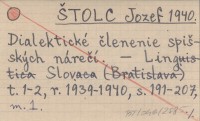 ŠTOLC Jozef 1940.
Dialektické členenie spiš-
ských nárečí. – Linguis-
tica Slovaca (Bratislava)
t. 1-2, r. 1939-1940, s. 191-207,
m. 1.